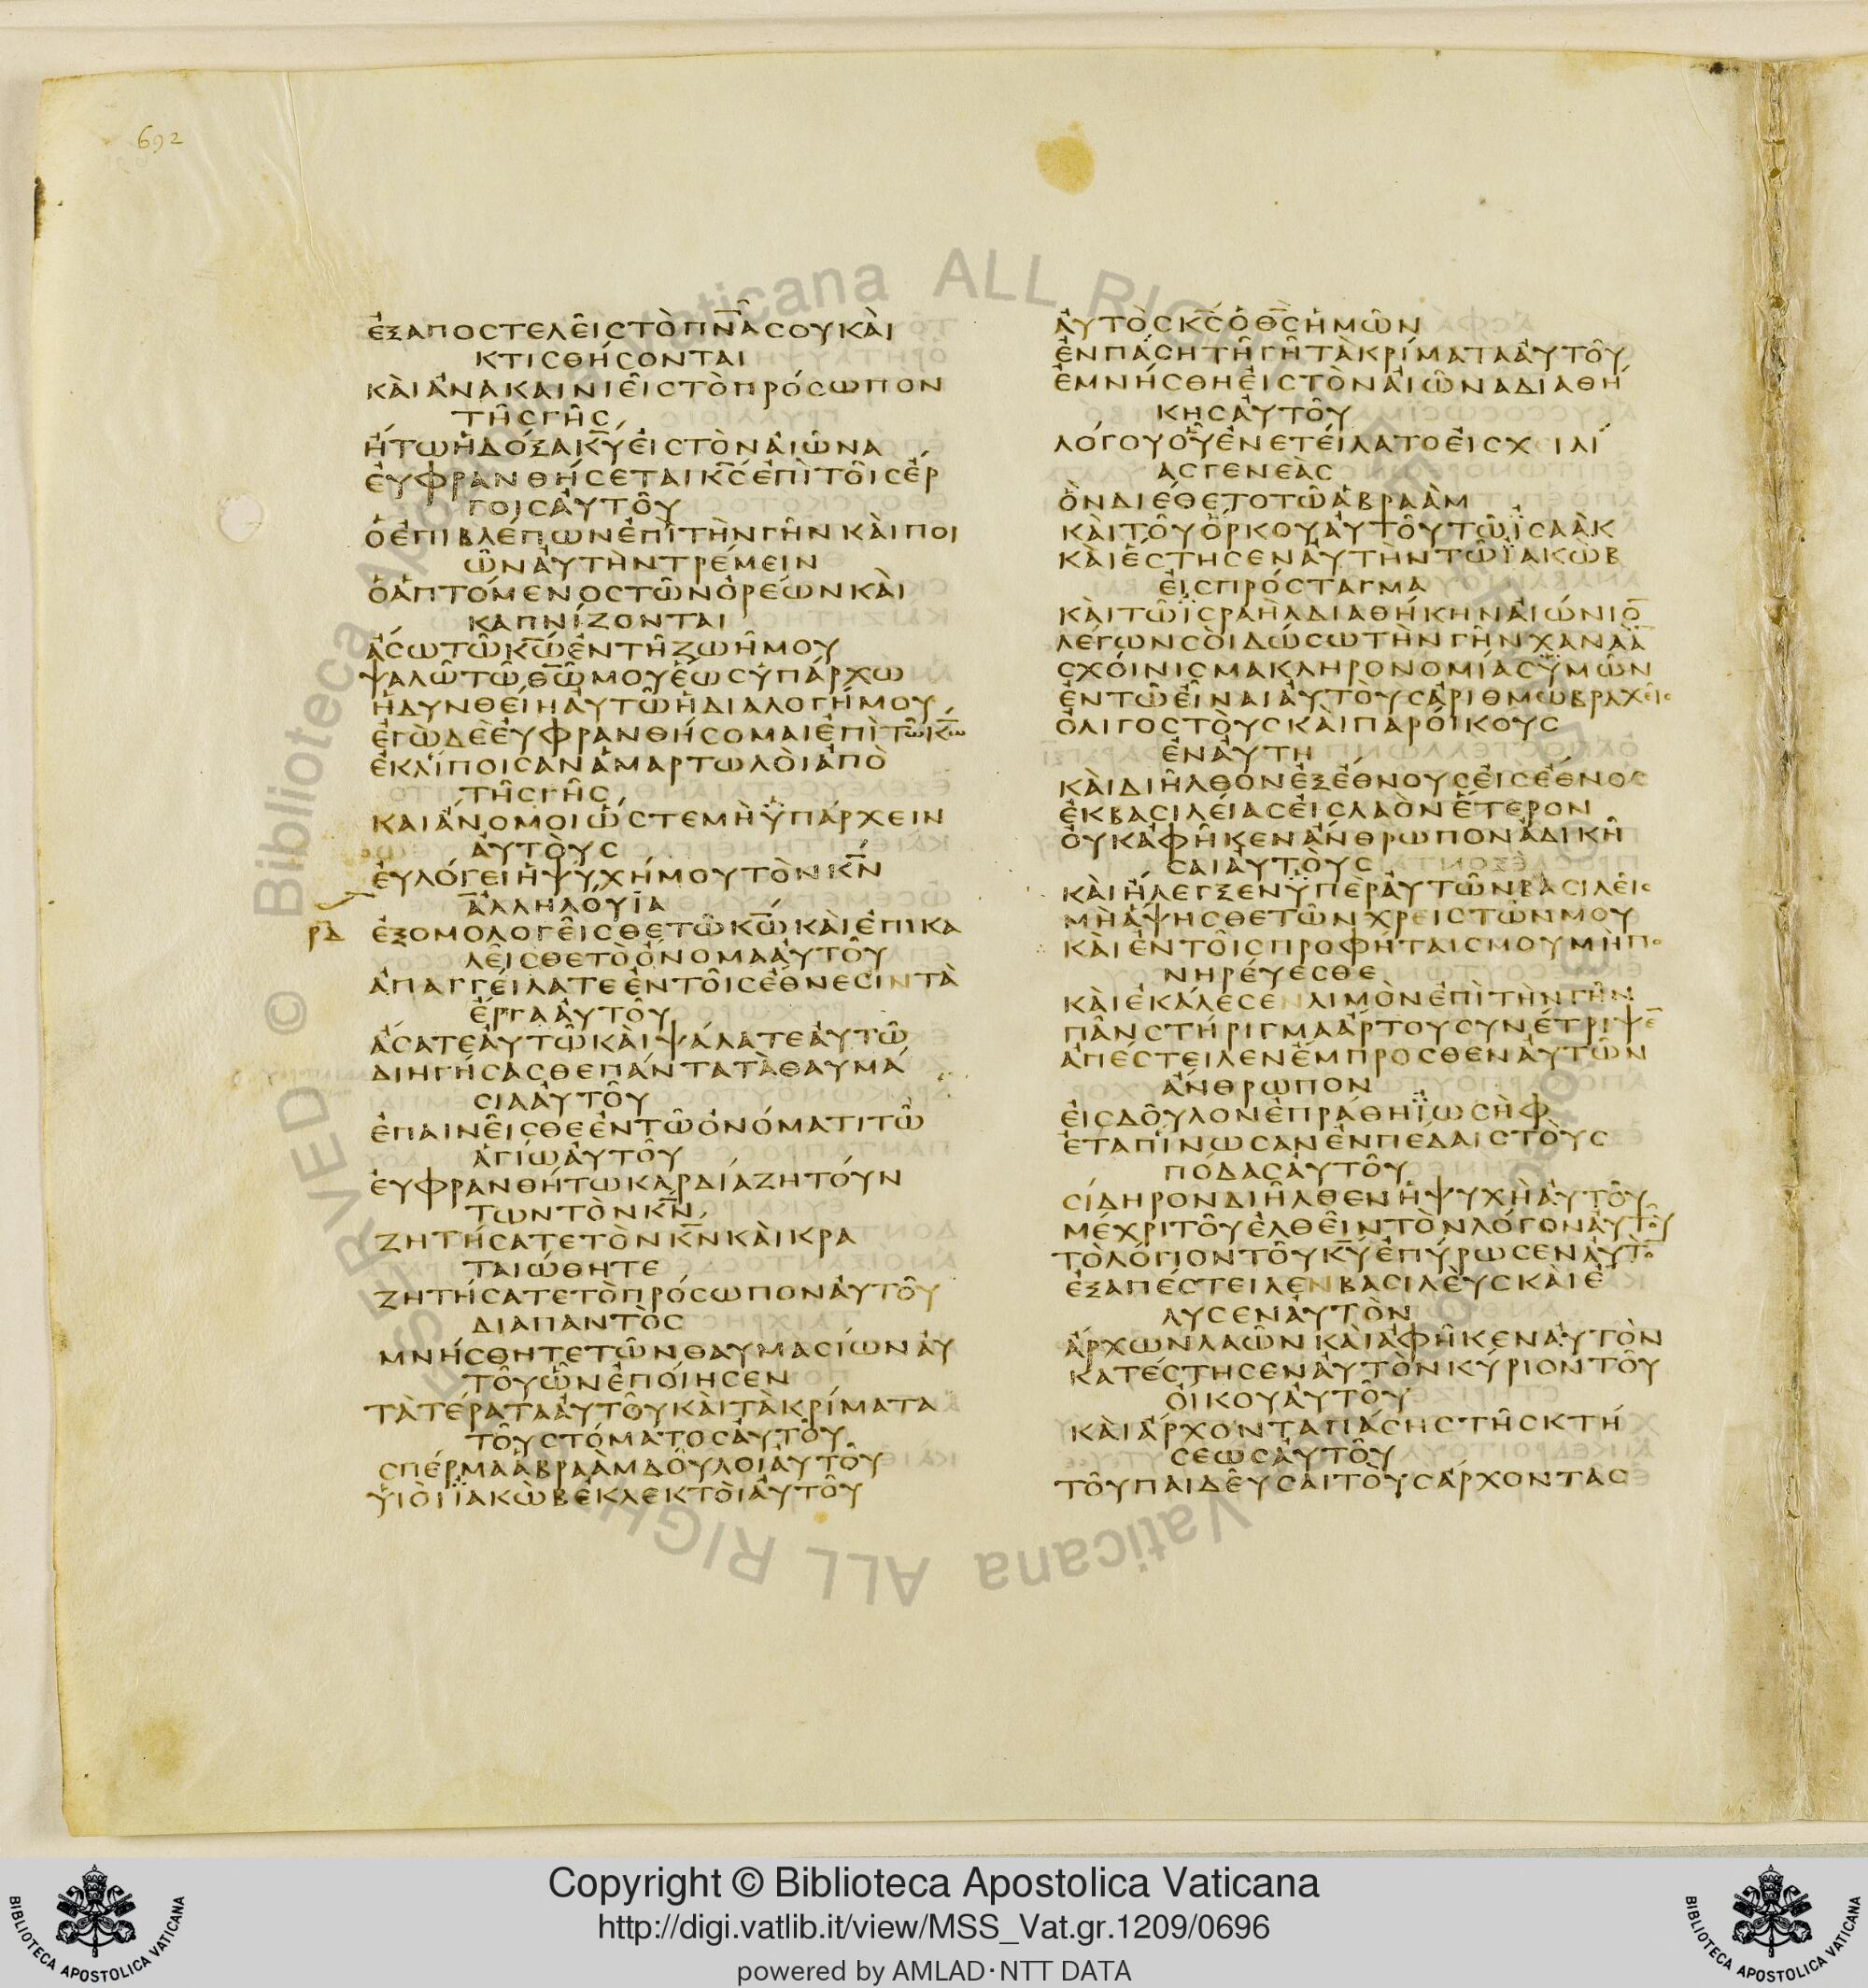 692
ΕΞΑΠΟϹΤΕΛΕΙϹΤΟΠΝ̅Α̅ϹΟΥΚΑΙ
ΚΤΙϹΘΗϹΟΝΤΑΙ
ΚΑΙΑΝΑΚΑΙΝΙΕΙϹΤΟΠΡΟϹΩΠΟΝ
ΤΗϹΓΗϹ
ΗΤΩΗΔΟΞΑΚ̅Υ̅ΕΙϹΤΟΝΑΙΩΝΑ
ΕΥΦΡΑΝΘΗϹΕΤΑΙΚ̅Ϲ̅ΕΠΙΤΟΙϹΕΡ
ΓΟΙϹΑΥΤΟΥ
ΟΕΠΙΒΛΕΠΩΝΕΠΙΤΗΝΓΗΝΚΑΙΠΟΙ
ΩΝΑΥΤΗΝΤΡΕΜΕΙΝ
ΟΑΠΤΟΜΕΝΟϹΤΩΝΟΡΕΩΝΚΑΙ
ΚΑΠΝΙΖΟΝΤΑΙ
ΑϹΩΤΩΚ̅Ω̅ΕΝΤΗΖΩΗΜΟΥ
ΨΑΛΩΤΩΘ̅Ω̅ΜΟΥΕΩϹΥΠΑΡΧΩ
ΗΔΥΝΘΕΙΗΑΥΤΩΗΔΙΑΛΟΓΗΜΟΥ
ΕΓΩΔΕΕΥΦΡΑΝΘΗϹΟΜΑΙΕΠΙΤΩΚ̅Ω̅
ΕΚΛΙΠΟΙϹΑΝΑΜΑΡΤΩΛΟΙΑΠΟ
ΤΗϹΓΗϹ
ΚΑΙΑΝΟΜΟΙΩϹΤΕΜΗΫΠΑΡΧΕΙΝ
ΑΥΤΟΥϹ
ΕΥΛΟΓΕΙΗΨΥΧΗΜΟΥΤΟΝΚ̅Ν̅
ΑΛΛΗΛΟΥΪΑ
ΡΔ
ΕΞΟΜΟΛΟΓΕΙϹΘΕΤΩΚ̅Ω̅ΚΑΙΕΠΙΚΑ
ΛΕΙϹΘΕΤΟΟΝΟΜΑΑΥΤΟΥ
ΑΠΑΓΓΕΙΛΑΤΕΕΝΤΟΙϹΕΘΝΕϹΙΝΤΑ
ΕΡΓΑΑΥΤΟΥ
ΑϹΑΤΕΑΥΤΩΚΑΙΨΑΛΑΤΕΑΥΤΩ
ΔΙΗΓΗϹΑϹΘΕΠΑΝΤΑΤΑΘΑΥΜΑ
ϹΙΑΑΥΤΟΥ
ΕΠΑΙΝΕΙϹΘΕΕΝΤΩΟΝΟΜΑΤΙΤΩ
ΑΓΙΩΑΥΤΟΥ
ΕΥΦΡΑΝΘΗΤΩΚΑΡΔΙΑΖΗΤΟΥΝ
ΤΩΝΤΟΝΚ̅Ν̅
ΖΗΤΗϹΑΤΕΤΟΝΚ̅Ν̅ΚΑΙΚΡΑ
ΤΑΙΩΘΗΤΕ
ΖΗΤΗϹΑΤΕΤΟΠΡΟϹΩΠΟΝΑΥΤΟΥ
ΔΙΑΠΑΝΤΟϹ
ΜΝΗϹΘΗΤΕΤΩΝΘΑΥΜΑϹΙΩΝΑΥ
ΤΟΥΩΝΕΠΟΙΗϹΕΝ
ΤΑΤΕΡΑΤΑΑΥΤΟΥΚΑΙΤΑΚΡΙΜΑΤΑ
ΤΟΥϹΤΟΜΑΤΟϹΑΥΤΟΥ
ϹΠΕΡΜΑΑΒΡΑΑΜΔΟΥΛΟΙΑΥΤΟΥ
ΥΙΟΙΪΑΚΩΒΕΚΛΕΚΤΟΙΑΥΤΟΥ
ΑΥΤΟϹΚ̅Ϲ̅ΟΘ̅Ϲ̅ΗΜΩΝ
ΕΝΠΑϹΗΤΗΓΗΤΑΚΡΙΜΑΤΑΑΥΤΟΥ
ΕΜΝΗϹΘΗΕΙϹΤΟΝΑΙΩΝΑΔΙΑΘΗ
ΚΗϹΑΥΤΟΥ
ΛΟΓΟΥΟΥΕΝΕΤΕΙΛΑΤΟΕΙϹΧΕΙΛΙ
ΑϹΓΕΝΕΑϹ
ΟΝΔΙΕΘΕΤΟΤΩΑΒΡΑΑΜ
ΚΑΙΤΟΥΟΡΚΟΥΑΥΤΟΥΤΩΪϹΑΑΚ
ΚΑΙΕϹΤΗϹΕΝΑΥΤΗΝΤΩΪΑΚΩΒ
ΕΙϹΠΡΟϹΤΑΓΜΑ
ΚΑΙΤΩΪϹΡΑΗΛΔΙΑΘΗΚΗΝΑΙΩΝΙΟ̅
ΛΕΓΩΝϹΟΙΔΩϹΩΤΗΝΓΗΝΧΑΝΑΑ̅
ϹΧΟΙΝΙϹΜΑΚΛΗΡΟΝΟΜΙΑϹΫΜΩΝ
ΕΝΤΩΕΙΝΑΙΑΥΤΟΥϹΑΡΙΘΜΩΒΡΑΧΕΙϹ
ΟΛΙΓΟϹΤΟΥϹΚΑΙΠΑΡΟΙΚΟΥϹ
ΕΝΑΥΤΗ
ΚΑΙΔΙΗΛΘΟΝΕΞΕΘΝΟΥϹΕΙϹΕΘΝΟϹ
ΕΚΒΑϹΙΛΕΙΑϹΕΙϹΛΑΟΝΕΤΕΡΟΝ
ΟΥΚΑΦΗΚΕΝΑΝΘΡΩΠΟΝΑΔΙΚΗ
ϹΑΙΑΥΤΟΥϹ
ΚΑΙΗΛΕΓΞΕΝΫΠΕΡΑΥΤΩΝΒΑϹΙΛΕΙϹ
ΜΗΑΨΗϹΘΕΤΩΝΧΡΕΙϹΤΩΝΜΟΥ
ΚΑΙΕΝΤΟΙϹΠΡΟΦΗΤΑΙϹΜΟΥΜΗΠΟ
ΝΗΡΕΥΕϹΘΕ
ΚΑΙΕΚΑΛΕϹΕΝΛΙΜΟΝΕΠΙΤΗΝΓΗΝ
ΠΑΝϹΤΗΡΙΓΜΑΑΡΤΟΥϹΥΝΕΤΡΙΨΕ̅
ΑΠΕϹΤΕΙΛΕΝΕΜΠΡΟϹΘΕΝΑΥΤΩΝ
ΑΝΘΡΩΠΟΝ
ΕΙϹΔΟΥΛΟΝΕΠΡΑΘΗΪΩϹΗΦ
ΕΤΑΠΙΝΩϹΑΝΕΝΠΕΔΑΙϹΤΟΥϹ
ΠΟΔΑϹΑΥΤΟΥ
ϹΙΔΗΡΟΝΔΙΗΛΘΕΝΗΨΥΧΗΑΥΤΟΥ
ΜΕΧΡΙΤΟΥΕΛΘΕΙΝΤΟΝΛΟΓΟΝΑΥΤΟΥ
ΤΟΛΟΓΙΟΝΤΟΥΚ̅Υ̅ΕΠΥΡΩϹΕΝΑΥΤΟ̅
ΕΞΑΠΕϹΤΕΙΛΕΝΒΑϹΙΛΕΥϹΚΑΙΕ
ΛΥϹΕΝΑΥΤΟΝ
ΑΡΧΩΝΛΑΩΝΚΑΙΑΦΗΚΕΝΑΥΤΟΝ
ΚΑΤΕϹΤΗϹΕΝΑΥΤΟΝΚΥΡΙΟΝΤΟΥ
ΟΙΚΟΥΑΥΤΟΥ
ΚΑΙΑΡΧΟΝΤΑΠΑϹΗϹΤΗϹΚΤΗ
ϹΕΩϹΑΥΤΟΥ
ΤΟΥΠΑΙΔΕΥϹΑΙΤΟΥϹΑΡΧΟΝΤΑϹ
Copyright © Biblioteca Apostolica Vaticana
http://digi.vatlib.it/view/MSS_Vat.gr.1209/0696
powered by AMLAD·NTT DATA
BIBLIOTECA APOSTOLICA VATICANA
BIBLIOTECA APOSTOLICA VATICANA